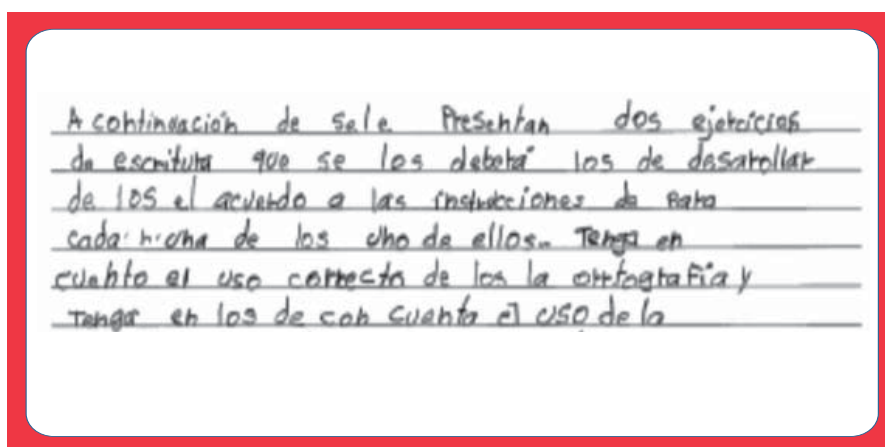 A continuación de sele Presentan dos ejercicios
de escritura que se los deberá los de desarollar
de los el acuerdo a las instrucciones de para
cada de los uno de ellos. Tenga en
cuento el uso correcto de los la orrtografía y
Tenga en los de con cuenta el uso de la